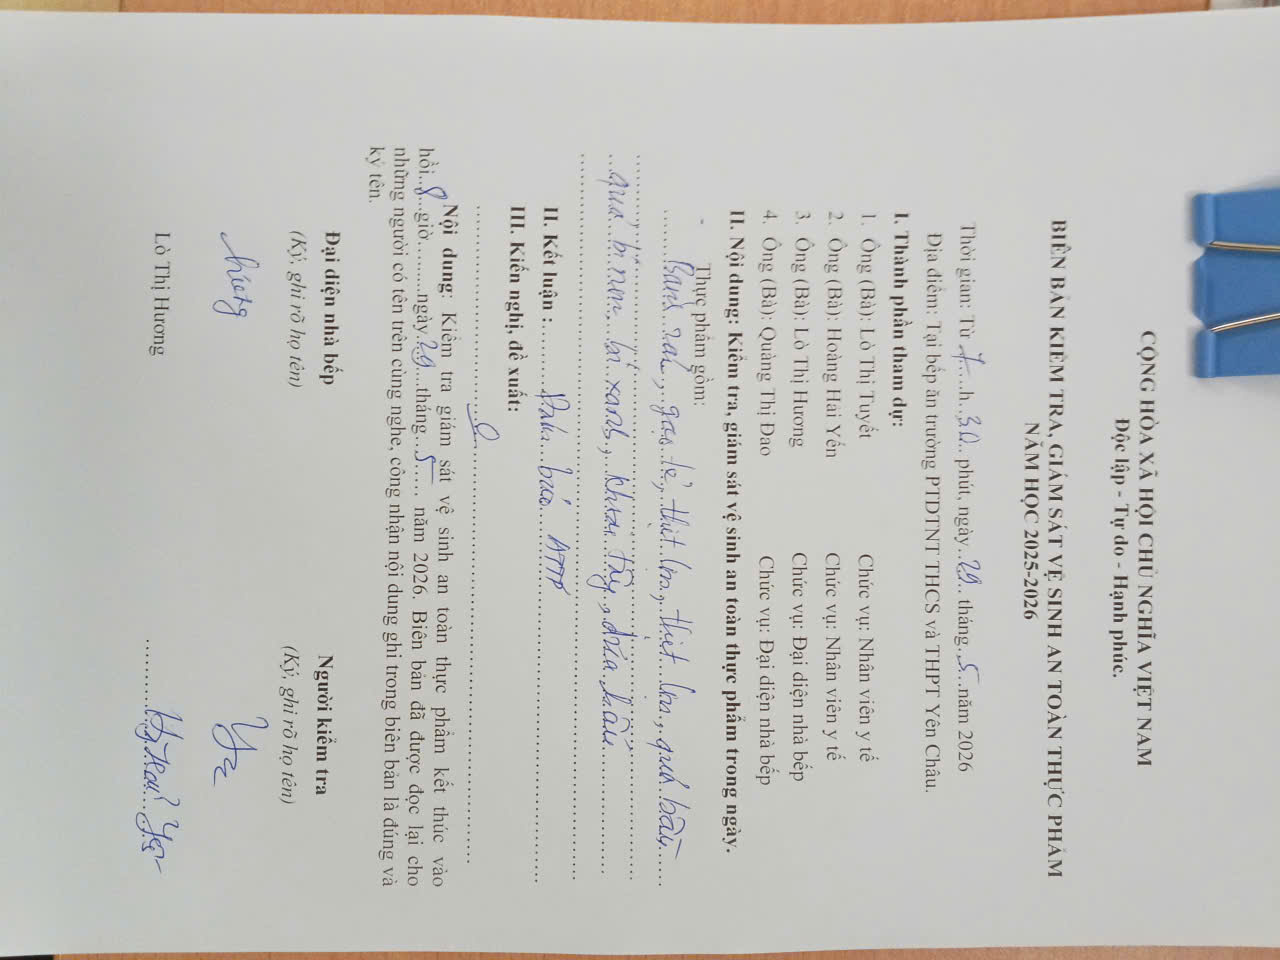 CỘNG HÒA XÃ HỘI CHỦ NGHĨA VIỆT NAM
Độc lập - Tự do - Hạnh phúc.
BIÊN BẢN KIỂM TRA, GIÁM SÁT VỆ SINH AN TOÀN THỰC PHẨM
NĂM HỌC 2025-2026
Thời gian: Từ 7 h 30 phút, ngày 29 tháng 5 năm 2026
Địa điểm: Tại bếp ăn trường PTDTNT THCS và THPT Yên Châu.
I. Thành phần tham dự:
1. Ông (Bà): Lò Thị Tuyết Chức vụ: Nhân viên y tế
2. Ông (Bà): Hoàng Hải Yến Chức vụ: Nhân viên y tế
3. Ông (Bà): Lò Thị Hương Chức vụ: Đại diện nhà bếp
4. Ông (Bà): Quàng Thị Đao Chức vụ: Đại diện nhà bếp
II. Nội dung: Kiểm tra, giám sát vệ sinh an toàn thực phẩm trong ngày.
- Thực phẩm gồm:
gạo tẻ, thịt lợn, thịt lợn, quả bầu
quả bí bí xanh, khoai tây, dưa hấu
II. Kết luận : Đảm bảo ATTP
III. Kiến nghị, đề xuất:
Nội dung: Kiểm tra giám sát vệ sinh an toàn thực phẩm kết thúc vào
hồi 8 giờ ngày 29 tháng 5 năm 2026. Biên bản đã được đọc lại cho
những người có tên trên cùng nghe, công nhận nội dung ghi trong biên bản là đúng và
ký tên.
Đại diện nhà bếp Người kiểm tra
(Ký, ghi rõ họ tên) (Ký, ghi rõ họ tên)
Hương
Lò Thị Hương